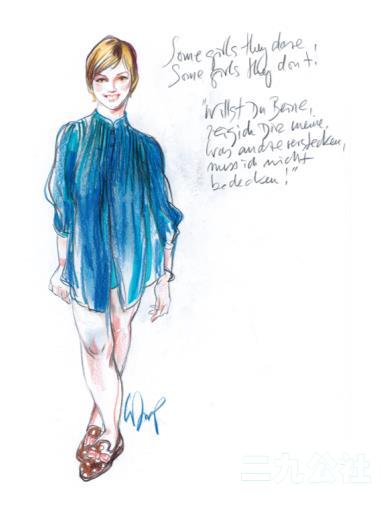 Some girls they dare,
Some girls they don't!
"Willst Du Beine,
zeig ich Dir meine,
was andre verstecken,
muss ich nicht
bedecken!"
二九公社